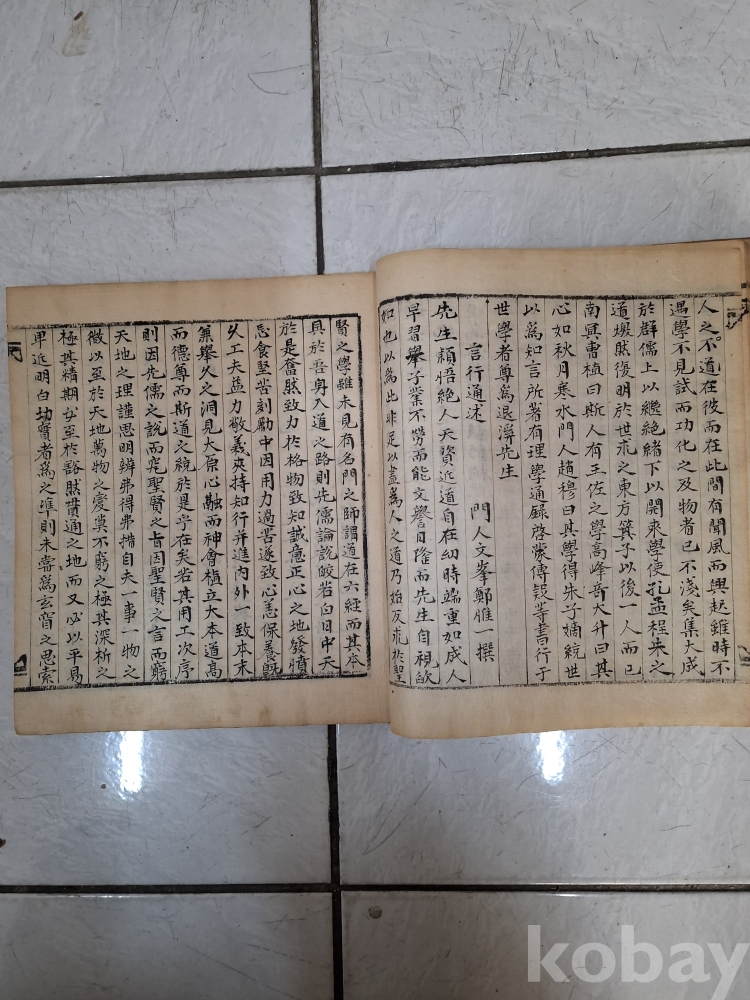 人之不道在彼而在此間有聞風而興起雖時不
遇學不見試而功化之及物者已不淺矣集大成
於群儒上以繼絶緖下以開來學使孔孟程朱之
道煥然復明於世求之東方箕子以後一人而已
南冥曺植曰斯人有王佐之學高峰奇大升曰其
心如秋月寒水門人趙穆曰其學得朱子嫡統世
以爲知言所著有理學通錄啓蒙傳疑等書行于
世學者尊爲退溪先生
言行通述 門人文峯鄭惟一撰
先生穎悟絶人天資近道自在幼時端重如成人
早習擧子業不勞而能文譽日隆而先生自視欿
如也以爲此非足以盡爲人之道乃抬反求於聖
賢之學雖未見有名門之師謂道在六經而其本
具於吾身入道之路則先儒論說皎若白日中天
於是奮然致力於格物致知誠意正心之地發憤
忘食堅苦刻勵中因用力過苦遂致心恙保養旣
久工夫益力敬義夾持知行并進內外一致本末
兼擧久之洞見大原心融而神會植立大本道高
而德尊而斯道之統於是乎在矣若其用工次序
則因先儒之說而究聖賢之旨因聖賢之言而窮
天地之理謹思明辨弗得弗措自夫一事一物之
微以至於天地萬物之變莫不窮之極其深析之
極其精期必至於豁然貫通之地而又必以平易
卑近明白切實者爲之準則未嘗爲玄質之思索
kobay